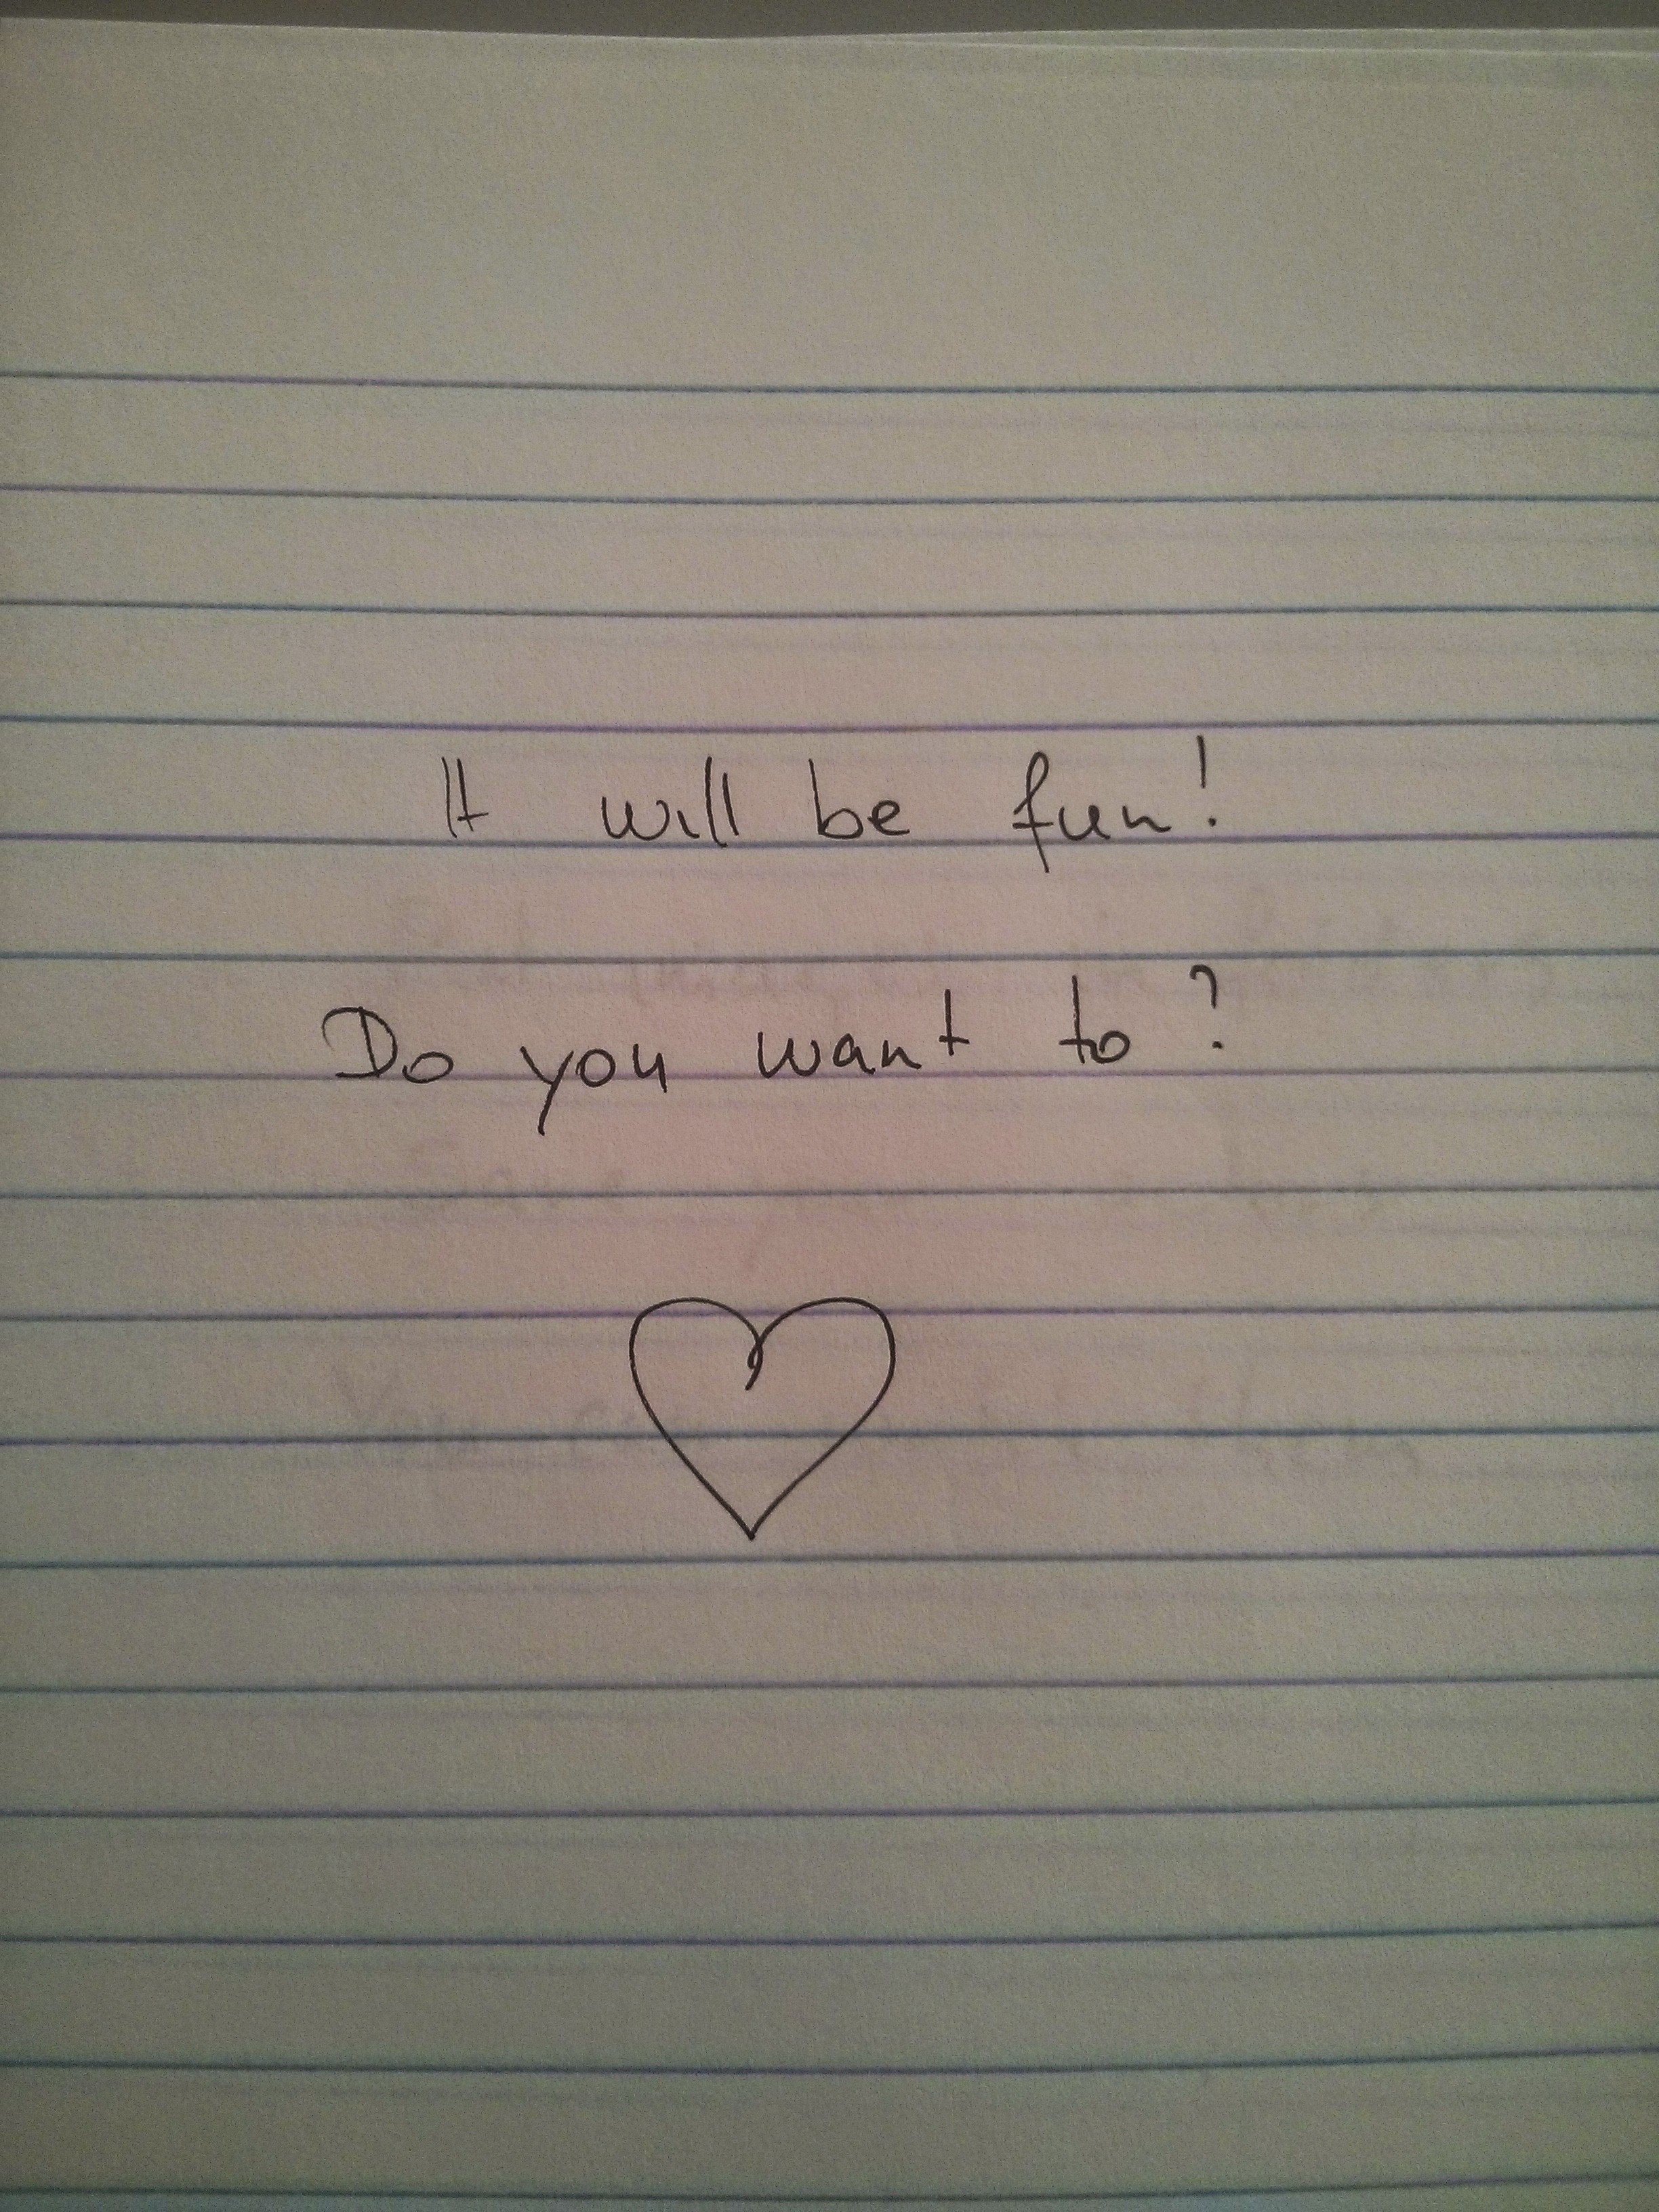 It will be fun!
Do you want to?